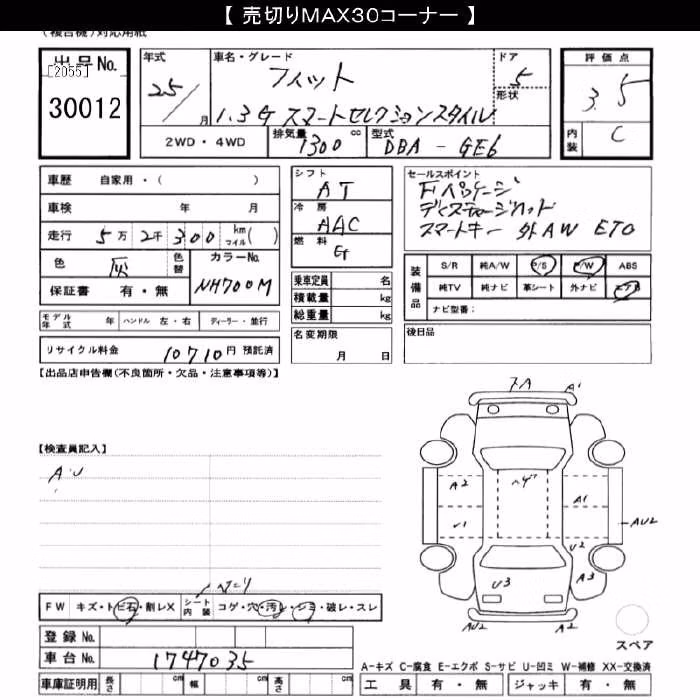 【 売切りMAX30コーナー 】
(複合機)対応用紙
出品No.
[2055]
30012
年式
25/
月
車名・グレード
フィット
1.3G スマートセレクションスタイル
ドア
5
形状
2WD・4WD
排気量
1300 cc
型式
DBA - GE6
評価点
3.5
内装
C
車歴 自家用・( )
車検 年 月
走行 5万 2千 300 km マイル( )
色 灰 色替
カラーNo.
NH700M
保証書 有・無
モデル年式 年 ハンドル 左・右 ディーラー・並行
リサイクル料金 10710円 預託済
シフト
AT
冷房
AAC
燃料
G
乗車定員 名
積載量 kg
総重量 kg
名変期限
月 日
セールスポイント
Fパッケージ
ディスチャージヘッド
スマートキー 外AW ETC
装備品
S/R 純A/W P/S P/W ABS
純TV 純ナビ 革シート 外ナビ エアB
ナビ型番:
後日品
【出品店申告欄(不良箇所・欠品・注意事項等)】
【検査員記入】
AU
FW キズ・トビ石・割レX シート内装 コゲ・穴・汚レ・シミ・破レ・スレ
登録No.
車台No. 1747035
車庫証明用 長さ cm 幅 cm 高さ cm
フA
A1
A2
A1
U1
AU2
U2
U3
A3
AU2
A2
スペア
A-キズ C-腐食 E-エクボ S-サビ U-凹ミ W-補修 XX-交換済
工具 有・無 ジャッキ 有・無